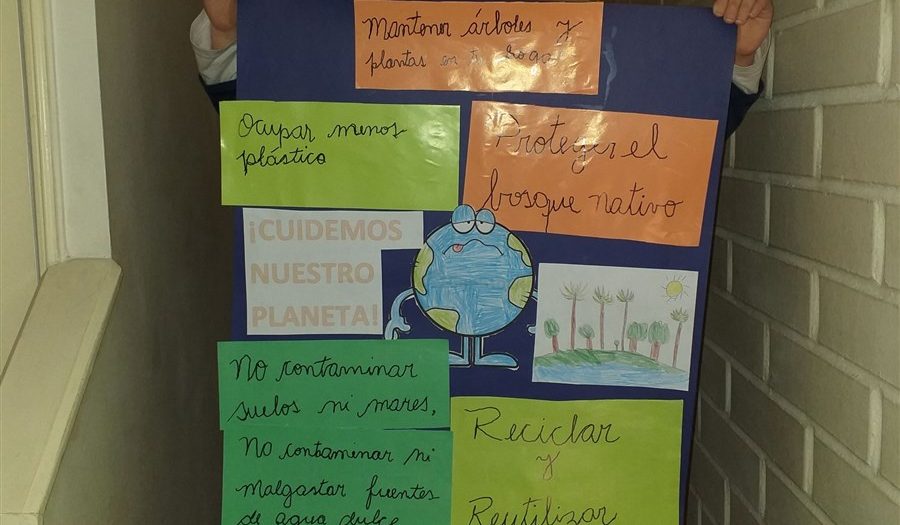 Mantener árboles y
plantas en tu hogar
Ocupar menos
plástico
Proteger el
bosque nativo
¡CUIDEMOS
NUESTRO
PLANETA!
No contaminar
suelos ni mares.
Reciclar
y
Reutilizar
No contaminar ni
malgastar fuentes
de agua dulce